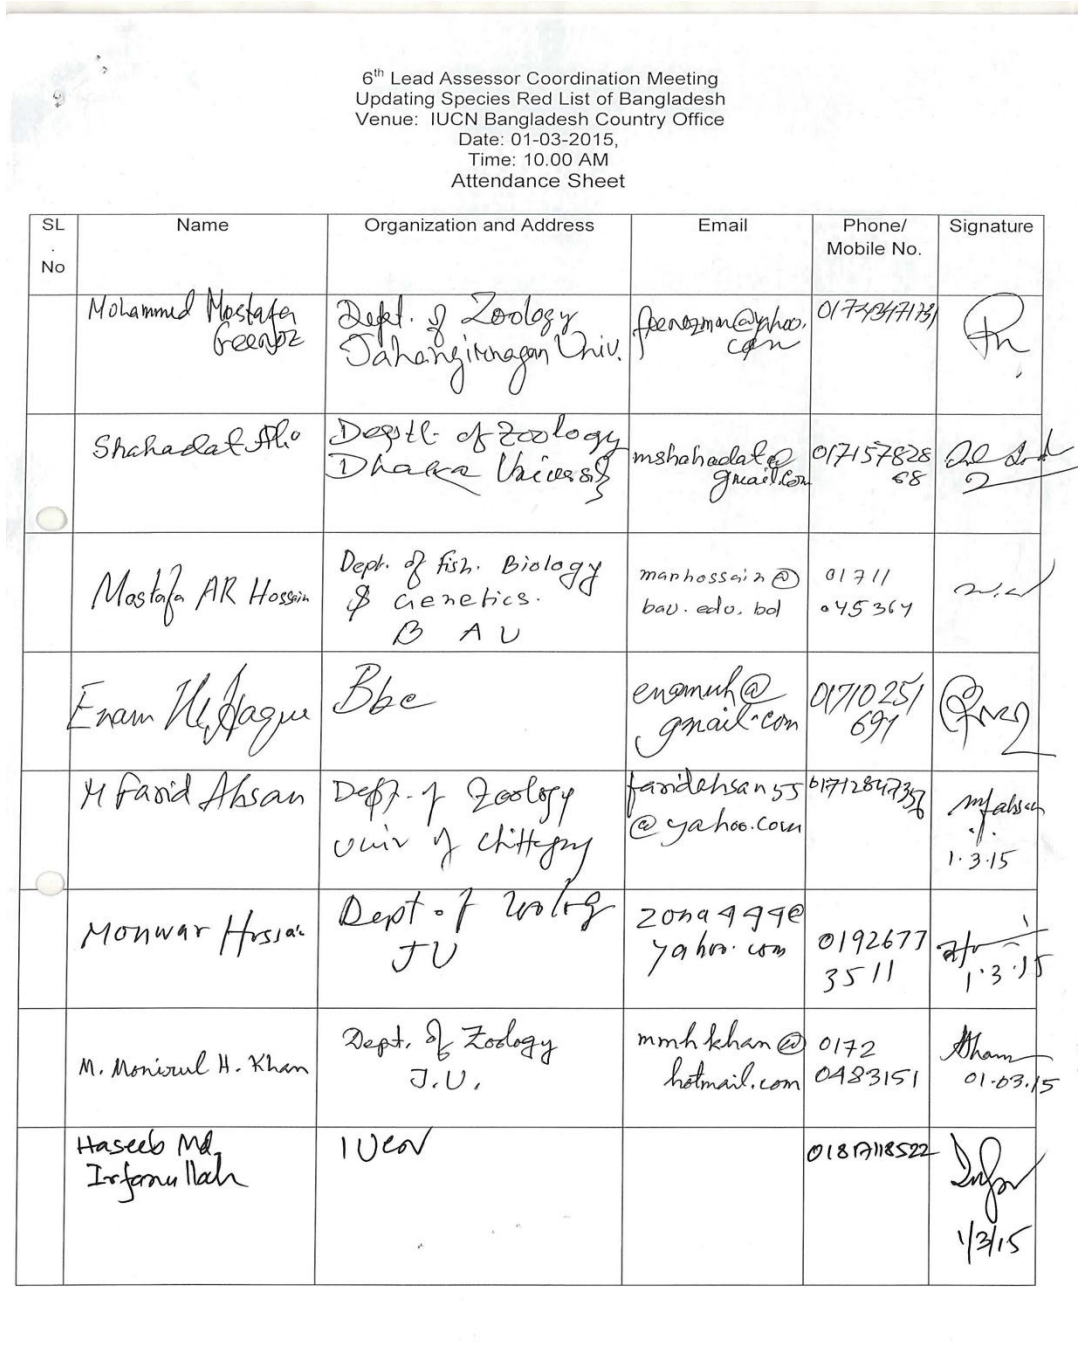 6th Lead Assessor Coordination Meeting
Updating Species Red List of Bangladesh
Venue: IUCN Bangladesh Country Office
Date: 01-03-2015,
Time: 10.00 AM
Attendance Sheet
SL . No Name Organization and Address Email Phone/ Mobile No. Signature
Mohammed Mostafa Feeroz
Dept. of Zoology
Jahangirnagar Univ.
feerozmm@yahoo.
com
Shahadat Ali
Deptt. of Zoology
Dhaka University
mshahadat@
gmail.com
017157828
68
Mostafa AR Hossain
Dept. of Fish. Biology
& Genetics.
B A U
marhossain@
bau.edu.bd
01711
045364
Enam Ul Haque
Bbc
enamuh@
gmail.com
01710251
691
M Farid Ahsan
Dept. of Zoology
Univ of Chittagong
faridahsan55
@yahoo.com
mfahsan
1.3.15
Monwar Hossain
Dept of Zoology
JU
zona999@
yahoo.com
0192677
3511
1.3.15
M. Monirul H. Khan
Dept. of Zoology
J.U.
mmhkhan@
hotmail.com
0172
0483151
01.03.15
Haseeb Md.
Irfanullah
IUCN
01817118522
1/3/15